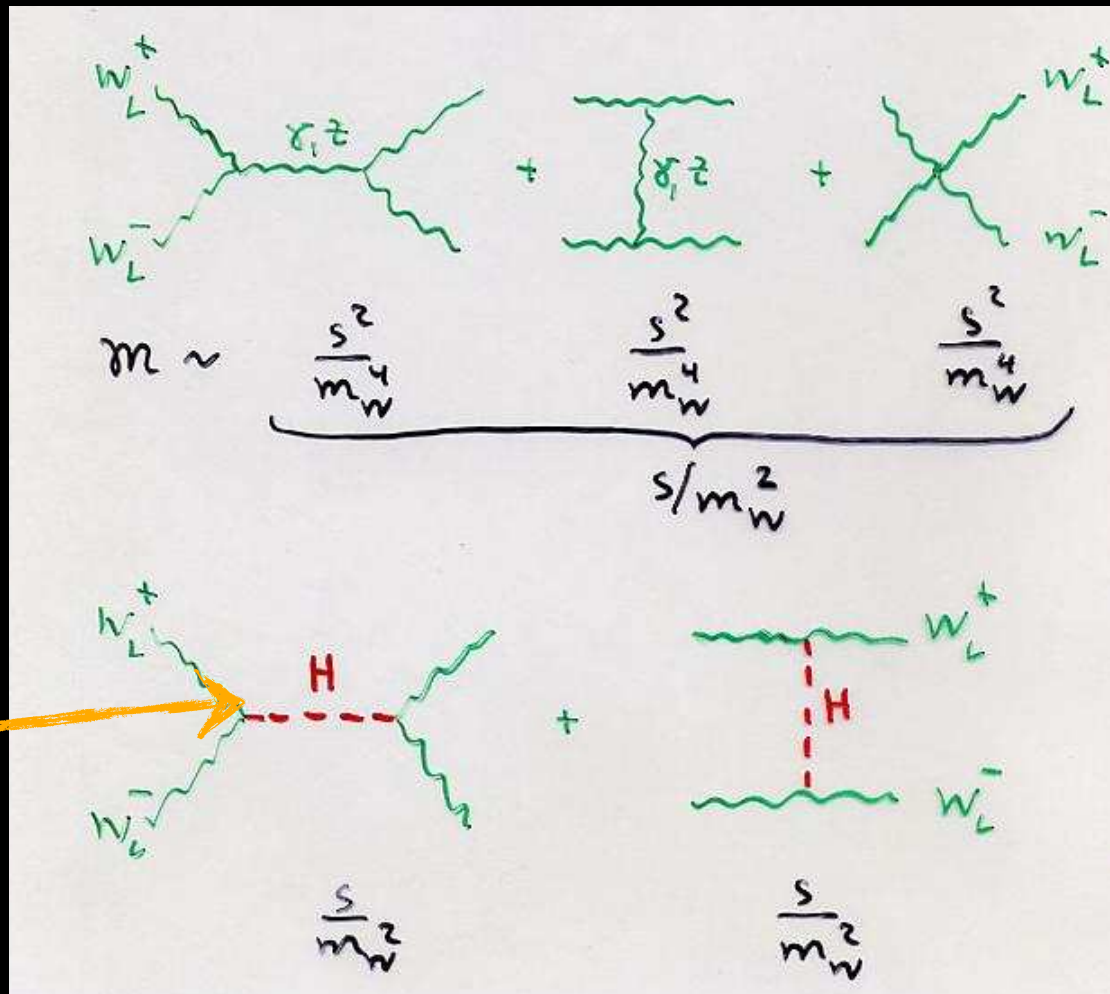 W_L^+ γ, Z + γ, Z + W_L^+
W_L^- W_L^-
m ~ s^2/m_W^4 s^2/m_W^4 s^2/m_W^4
s/m_W^2
W_L^+ H + H W_L^+
W_L^- W_L^-
s/m_W^2 s/m_W^2